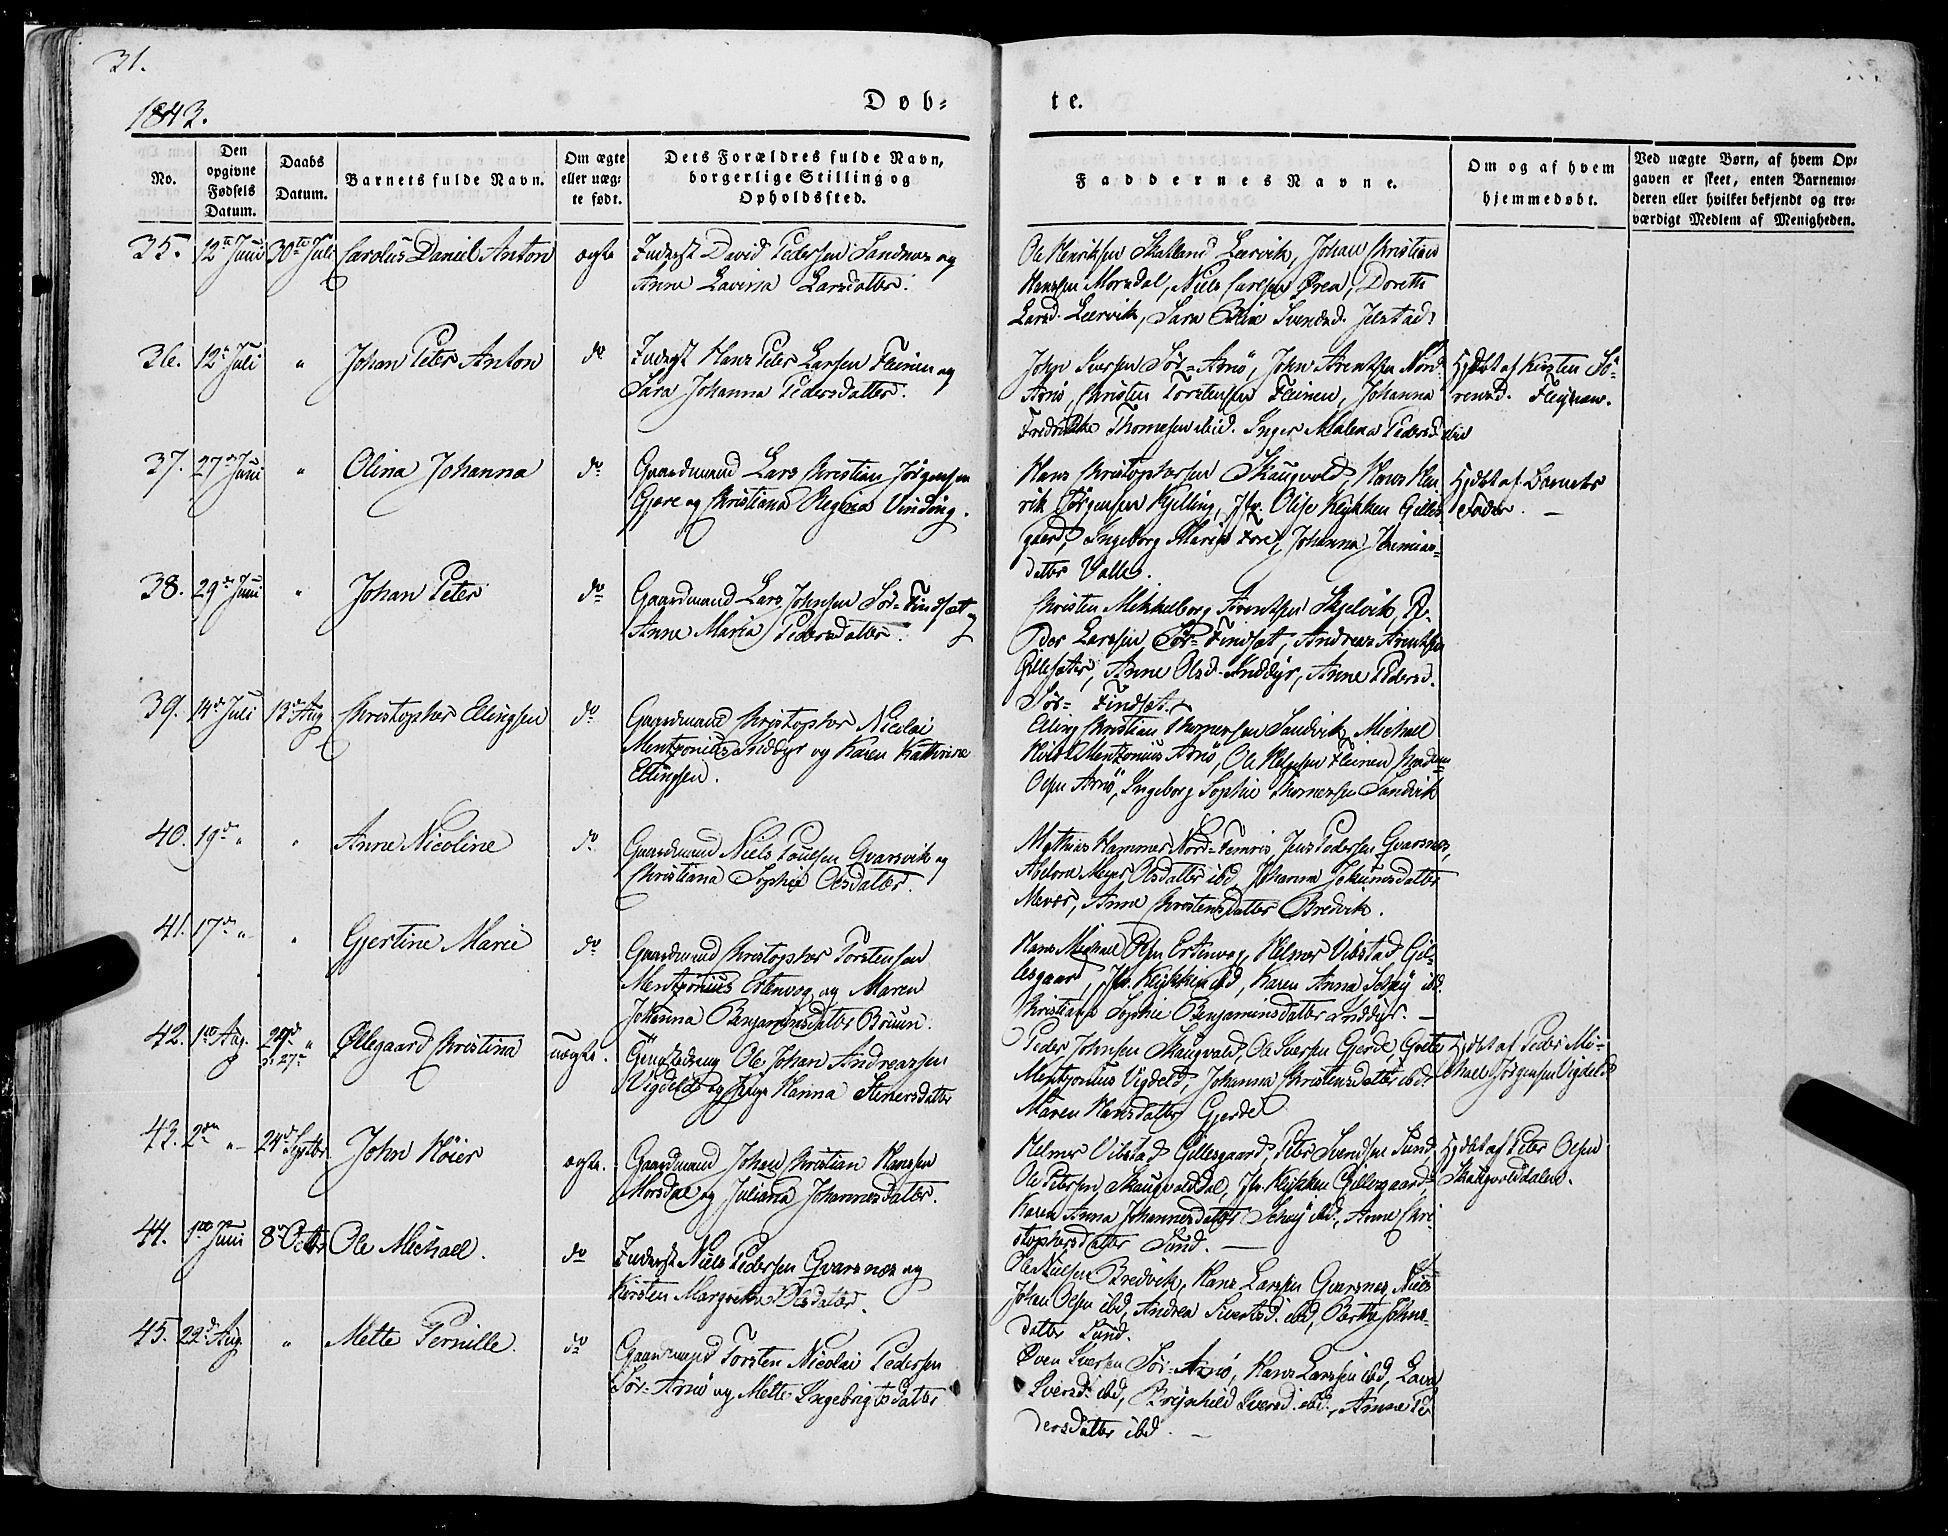 31.
1843.
Døb-
te.
No.
Den
opgivne
Fødsels
Datum.
Daabs
Datum.
Barnets fulde Navn.
Om ægte
eller uæg-
te født.
Dets Forældres fulde Navn,
borgerlige Stilling og
Opholdssted.
Faddernes Navne.
Om og af hvem
hjemmedøbt.
Ved uægte Børn, af hvem Op-
gaven er skeet, enten Barnemo-
deren eller hvilket bekjendt og tro-
værdigt Medlem af Menigheden.
35. 12te Juni 30te Juli Carolus Daniel Anton ægte
Inderst David Pedersen Sandnæs og
Anne Lavina Larsdatter.
Ole Henriksen Leervik, Johan Christian
Hanssen Morsdal, Niels Carlsen Øren, Dorette
Larsd. Leervik, Sara Svendsd. Jelstad
36. 12te Juli " Johan Peter Anton do
Inderst Hans Peter Larssen Fleinen og
Sara Johanna Pedersdatter.
John Iversen Sör-Arnö, John Arentsen Nord-
Arnö, Christen Torstensen Fleinen, Johanna
Fredrikke Thomesen ibid. Inger Malena Pedersd ibid
Hjdøbt af Kirsten Sö-
rensd. Fleinen.
37. 27de Juni " Olina Johanna do
Gaardmand Lars Christian Jörgensen
Gjære og Christiana Regina Vinding.
Hans Christophersen Skaugvold, Hans Hen-
rik Jörgensen Gilling, Jfr. Olise Klykken Gilles-
gaard, Ingeborg Maria Fore, Johanna Jeremias-
datter Valle.
Hjdøbt af Barnets
Fader.
38. 29de Juni " Johan Peter do
Gaardmand Lars Johnsen Sör-Findsæt og
Anne Maria Pedersdatter.
Christen Mekkelborg Arentsen Skjelvik, Pe-
der Larssen Sör-Findsæt, Andreas Arentsen
Gillesæter, Anne Olsd. Inddyr, Anne Pedersd.
Sör-Findsæt.
39. 14de Juli 13de Aug Christopher Ellingsen do
Gaardmand Christopher Nicolai
Mentzonius Inddyr og Karen Kathrine
Ellingsen.
Elling Christian Thomessen Sandvik, Michael
Mentzonius Arnö, Ole Fleinen,
Olsen Arnö, Ingeborg Sophie Thomessen Sandvik
40. 19de " " Anne Nicoline do
Gaardmand Niels Poulsen Qvarsvik og
Christiana Sophie Olsdatter.
Mathias Hammer Nord-Femris, Jens Pedersen Qvarsnæs,
Abelona Meyer Olsdatter ibd, Johanna Jokumsdatter
Mevær, Anne Christensdatter Bredvik.
41. 17de " " Gjertine Marie do
Gaardmand Christopher Torstensen
Mentzonius Ertenvog og Maren
Johanna Benjaminsdatter Bruun.
Hans Michael Olsen Ertenvog, Helmer Vibstad Gil-
lesgaard, Jfr. Klykken ibd, Karen Anna Schöy ibd.
Christiana Sophie Benjaminsdatter Inddyr.
42. 1ste Aug. " Øllegaard Christina uægte.
Ole Johan Andreassen
Vigdel og Pige Hanna Steнersdatter
Peder Johnsen Skaugvold, Ole Iversen Gjerde, Grete
Mentzonius Vigdel, Johanna Christensdatter ibd.
Maren Hansdatter Gjerde
Hjdøbt af Peder Mi-
chael Jörgensen Vigdel
43. 2den " 24de Septbr John Höier ægte.
Gaardmand Johan Christian Hanssen
Morsdal og Juliana Johannesdatter.
Helmer Vibstad Gillesgaard, Peter Svendsen Sund
Ole Petersen Skaugvolddal, Jfr. Klykken Gillesgaard,
Karen Anna Johannesdatter Schöy ibd., Anne Chri-
stophersdatter Sund.
Hjdøbt af Peter Olsen
Skaugvolddalen.
44. 1ste Juni 8de Octbr Ole Michael. do
Inderst Niels Pedersen Qvarsnæs og
Kirsten Margrethe Olsdatter.
Ole Nielsen Bredvik, Hans Larssen Qvarsnes, Niels
Johan Olsen ibd, Andrea Sivertsd. ibd, Bertha Johns-
datter Sund.
45. 22de Aug. " Mette Pernille. do
Gaardmand Torsten Nicolai Pedersen
Sör-Arnö og Mette Ingebrigtsdatter
Even Iversen Sör-Arnö, Hans Larssen ibd,
Iversd. ibd, Brynhild Iversd. ibd., Anne Pe-
dersdatter ibd.